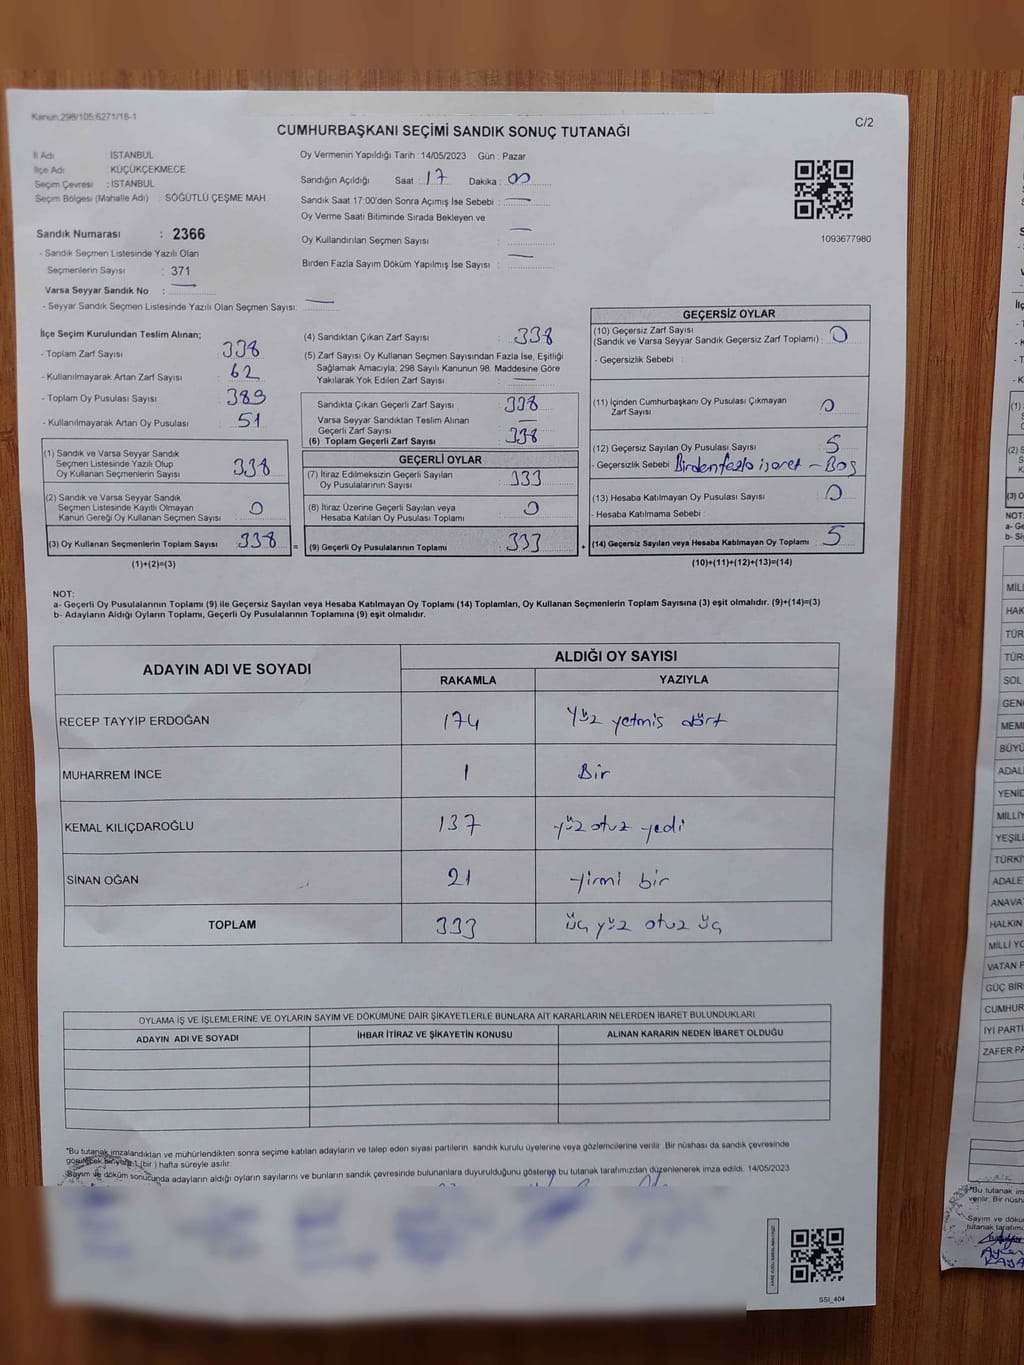 Kanun:298/105:6271/16-1
C/2
CUMHURBAŞKANI SEÇİMİ SANDIK SONUÇ TUTANAĞI
İl Adı : İSTANBUL
İlçe Adı : KÜÇÜKÇEKMECE
Seçim Çevresi : İSTANBUL
Seçim Bölgesi (Mahalle Adı) : SÖĞÜTLÜ ÇEŞME MAH.
Sandık Numarası : 2366
- Sandık Seçmen Listesinde Yazılı Olan
Seçmenlerin Sayısı : 371
Varsa Seyyar Sandık No :
- Seyyar Sandık Seçmen Listesinde Yazılı Olan Seçmen Sayısı:
Oy Vermenin Yapıldığı Tarih : 14/05/2023 Gün : Pazar
Sandığın Açıldığı Saat : 17 Dakika : 00
Sandık Saat 17:00'den Sonra Açımış İse Sebebi :
Oy Verme Saati Bitiminde Sırada Bekleyen ve
Oy Kullandırılan Seçmen Sayısı :
Birden Fazla Sayım Döküm Yapılmış İse Sayısı :
1093677980
İlçe Seçim Kurulundan Teslim Alınan;
- Toplam Zarf Sayısı : 338
- Kullanılmayarak Artan Zarf Sayısı : 62
- Toplam Oy Pusulası Sayısı : 389
- Kullanılmayarak Artan Oy Pusulası : 51
(1) Sandık ve Varsa Seyyar Sandık
Seçmen Listesinde Yazılı Olup
Oy Kullanan Seçmenlerin Sayısı 338
(2) Sandık ve Varsa Seyyar Sandık
Seçmen Listesinde Kayıtlı Olmayan
Kanun Gereği Oy Kullanan Seçmen Sayısı : 0
(3) Oy Kullanan Seçmenlerin Toplam Sayısı 338
(1)+(2)=(3)
(4) Sandıktan Çıkan Zarf Sayısı : 338
(5) Zarf Sayısı Oy Kullanan Seçmen Sayısından Fazla İse, Eşitliği
Sağlamak Amacıyla; 298 Sayılı Kanunun 98. Maddesine Göre
Yakılarak Yok Edilen Zarf Sayısı :
Sandıkta Çıkan Geçerli Zarf Sayısı : 338
Varsa Seyyar Sandıktan Teslim Alınan
Geçerli Zarf Sayısı :
(6) Toplam Geçerli Zarf Sayısı : 338
GEÇERLİ OYLAR
(7) İtiraz Edilmeksizin Geçerli Sayılan
Oy Pusulalarının Sayısı : 333
(8) İtiraz Üzerine Geçerli Sayılan veya
Hesaba Katılan Oy Pusulası Toplamı : 0
= (9) Geçerli Oy Pusulalarının Toplamı : 333
GEÇERSİZ OYLAR
(10) Geçersiz Zarf Sayısı
(Sandık ve Varsa Seyyar Sandık Geçersiz Zarf Toplamı) : 0
- Geçersizlik Sebebi :
(11) İçinden Cumhurbaşkanı Oy Pusulası Çıkmayan
Zarf Sayısı : 0
(12) Geçersiz Sayılan Oy Pusulası Sayısı : 5
- Geçersizlik Sebebi : Birden fazla işaret - Boş
(13) Hesaba Katılmayan Oy Pusulası Sayısı : 0
- Hesaba Katılmama Sebebi :
+ (14) Geçersiz Sayılan veya Hesaba Katılmayan Oy Toplamı : 5
(10)+(11)+(12)+(13)=(14)
NOT:
a- Geçerli Oy Pusulalarının Toplamı (9) ile Geçersiz Sayılan veya Hesaba Katılmayan Oy Toplamı (14) Toplamları, Oy Kullanan Seçmenlerin Toplam Sayısına (3) eşit olmalıdır. (9)+(14)=(3)
b- Adayların Aldığı Oyların Toplamı, Geçerli Oy Pusulalarının Toplamına (9) eşit olmalıdır.
ADAYIN ADI VE SOYADI
ALDIĞI OY SAYISI
RAKAMLA YAZIYLA
RECEP TAYYİP ERDOĞAN 174 yüz yetmis dört
MUHARREM İNCE 1 Bir
KEMAL KILIÇDAROĞLU 137 yüz otuz yedi
SİNAN OĞAN 21 yirmi bir
TOPLAM 333 üç yüz otuz üç
OYLAMA İŞ VE İŞLEMLERİNE VE OYLARIN SAYIM VE DÖKÜMÜNE DAİR ŞİKAYETLERLE BUNLARA AİT KARARLARIN NELERDEN İBARET BULUNDUKLARI
ADAYIN ADI VE SOYADI İHBAR İTİRAZ VE ŞİKAYETİN KONUSU ALINAN KARARIN NEDEN İBARET OLDUĞU
*Bu tutanak imzalandıktan ve mühürlendikten sonra seçime katılan adayların ve talep eden siyasi partilerin sandık kurulu üyelerine veya gözlemcilerine verilir. Bir nüshası da sandık çevresinde
(bir) hafta süreyle asılır.
Sayım ve döküm sonucunda adayların aldığı oyların sayılarını ve bunların sandık çevresinde bulunanlara duyurulduğunu gösteren bu tutanak tarafımızdan düzenlenerek imza edildi. 14/05/2023
SSI_404
(1)
(2)
(3) O
NOT:
a- Ge
b- Si
MİL
HAK
TÜR
TÜR
SOL
GEN
MEM
BÜYÜ
ADAL
YENİD
MİLLİY
YEŞİL
TÜRKİY
ADALE
ANAVA
HALKIN
MİLLİ YO
VATAN P
GÜÇ BİR
CUMHUR
İYİ PARTİ
ZAFER PA
*Bu tutanak imz
verilir. Bir nüsh
Sayım ve dökü
tutanak tarafım